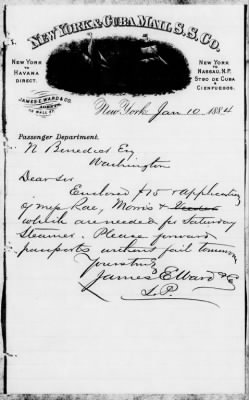 NEW YORK & CUBA MAIL S.S. CO.
NEW YORK
TO
HAVANA
DIRECT.
JAMES E. WARD & CO.
NEW YORK
TO
NASSAU, N.P.
STGO DE CUBA
&
CIENFUEGOS.
New York Jan 10 1884
Passenger Department.
N Benedict Esq
Washington
Dear Sir
Enclosed $15 & application
of Rae, Morris &
which are needed for Saturday
Steamer. Please forward
passports without fail tomorrow
Yours truly
James E Ward & Co